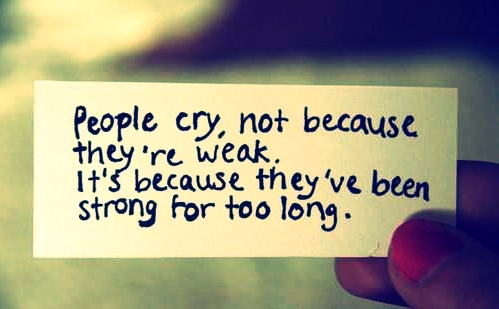 People cry, not because
they're weak.
It's because they've been
strong for too long.